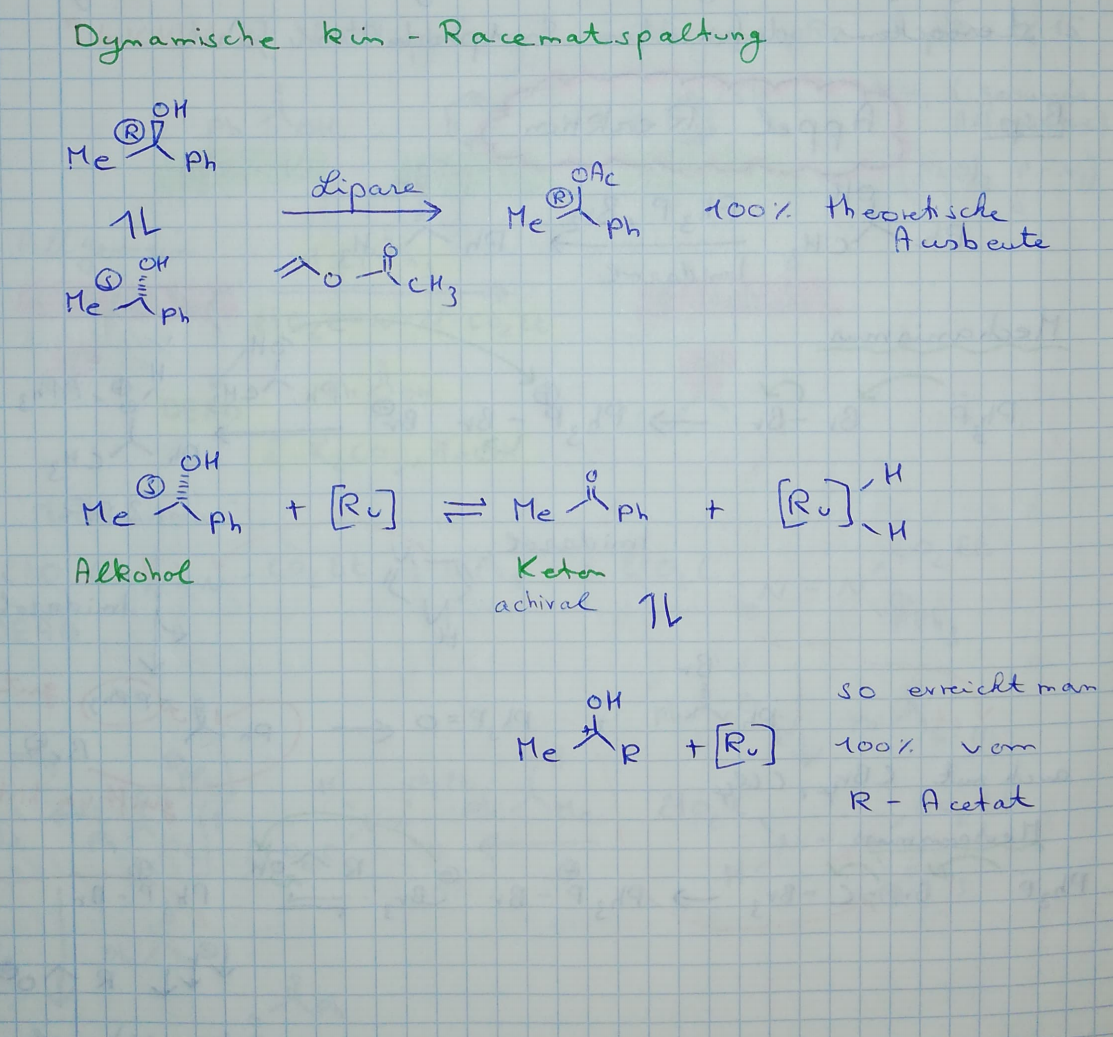 Dynamische kin - Racematspaltung
OH
Ⓡ
Me Ph
Lipase
OAc
Ⓡ
Me Ph
100% theoretische
Ausbeute
OH
Ⓢ
Me Ph
O
O CH3
OH
Ⓢ
Me Ph + [Ru] ⇌ Me Ph + [Ru]
O
H
H
Alkohol Keton
achiral
OH
Me R + [Ru]
so erreicht man
100% vom
R - Acetat